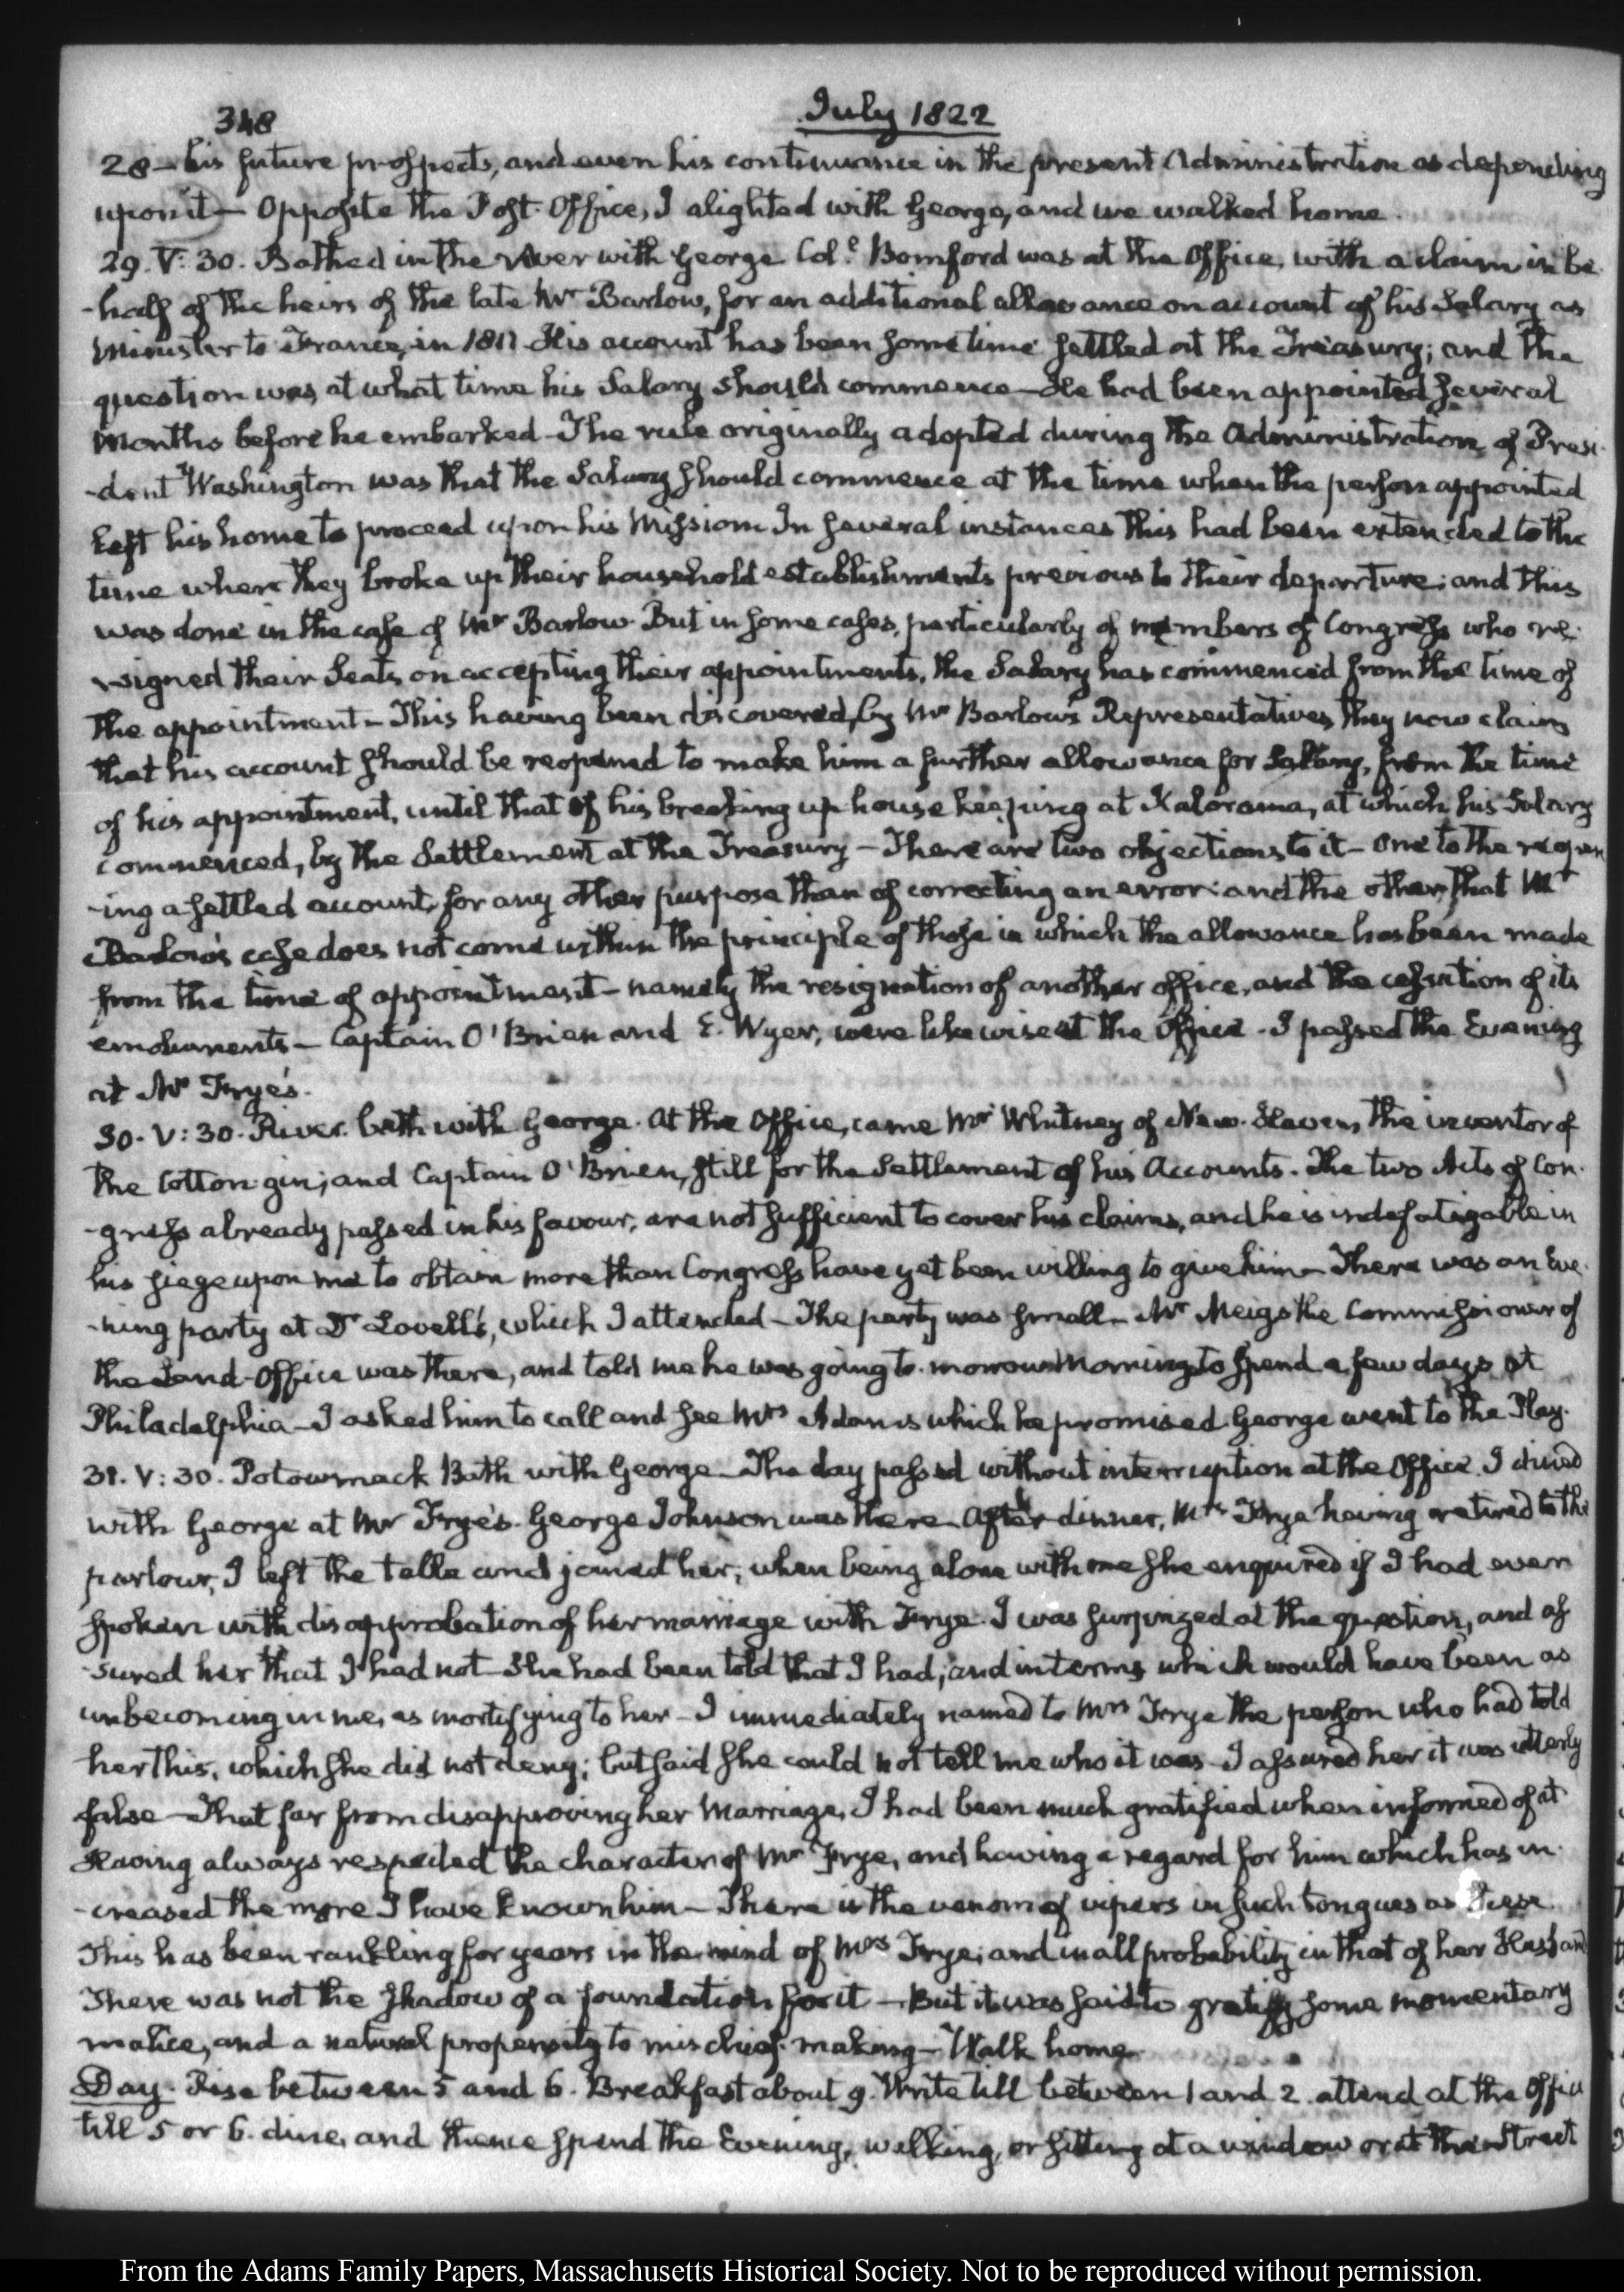 348
July 1822
28 — his future prospects, and even his continuance in the present Administration as depending
upon it — Opposite the Post-Office, I alighted with George, and we walked home.
29. V: 30. Bathed in the river with George. Col.l Bomford was at the Office, with a claim in be-
-half of the heirs of the late Mr Barlow, for an additional allowance on account of his Salary as
Minister to France, in 1811. His account has been some time settled at the Treasury; and the
question was, at what time his Salary should commence — He had been appointed several
months before he embarked — The rule originally adopted during the Administration of Presi-
-dent Washington was that the Salary should commence at the time when the person appointed
left his home to proceed upon his Mission. In several instances this had been extended to the
time where they broke up their household establishments previous to their departure; and this
was done in the case of Mr Barlow. But in some cases, particularly of members of Congress who re-
-signed their Seats on accepting their appointments, the Salary has commenced from the time of
the appointment — This having been discovered, by Mr Barlow's Representatives, they now claim
that his account should be reopened to make him a further allowance for Salary, from the time
of his appointment, until that of his breaking up house keeping at Kalorama, at which his Salary
commenced, by the Settlement at the Treasury — There are two objections to it — one to the reopen
-ing a settled account, for any other purpose than of correcting an error: and the other, that Mr
Barlow's case does not come within the principle of those in which the allowance has been made
from the time of appointment — namely the resignation of another office, and the cessation of its
emoluments — Captain O'Brien and E. Wyer, were likewise at the Office — I passed the Evening
at Mr Frye's.
30. V: 30. River bath with George. At the Office, came Mr Whitney of New-Haven, the inventor of
the Cotton gin; and Captain O'Brien, still for the Settlement of his Accounts. The two Acts of Con-
-gress already passed in his favour, are not sufficient to cover his claims, and he is indefatigable in
his siege upon me to obtain more than Congress have yet been willing to give him — There was an Eve-
-ning party at Dr Lovell's, which I attended — The party was small — Mr Meigs the Commissioner of
the Land-Office was there, and told me he was going to-morrow Morning to spend a few days at
Philadelphia — I asked him to call and see Mrs Adams which he promised. George went to the Play.
31. V: 30. Potowmack Bath with George — The day passed without interruption at the Office. I dined
with George at Mr Frye's. George Johnson was there. After dinner, Mrs Frye having retired to the
parlour, I left the table and joined her; when being alone with me she enquired if I had ever
spoken with disapprobation of her marriage with Frye. I was surprized at the question, and as
-sured her that I had not — She had been told that I had, and in terms which would have been as
unbecoming in me, as mortifying to her — I immediately named to Mrs Frye the person who had told
her this, which she did not deny; but said she could not tell me who it was — I assured her it was utterly
false — That far from disapproving her Marriage, I had been much gratified when informed of it
Having always respected the character of Mr Frye, and having a regard for him which has in-
-creased the more I have known him — There is the venom of vipers in such tongues as these.
This has been rankling for years in the mind of Mrs Frye; and in all probability in that of her Husband
There was not the shadow of a foundation for it — But it was said to gratify some momentary
malice, and a natural propensity to mischief-making — Walk home.
Day. Rise between 5 and 6. Breakfast about 9. Write till between 1 and 2. attend at the Office
till 5 or 6. dine, and thence spend the Evening, walking, or sitting at a window or at the street
From the Adams Family Papers, Massachusetts Historical Society. Not to be reproduced without permission.